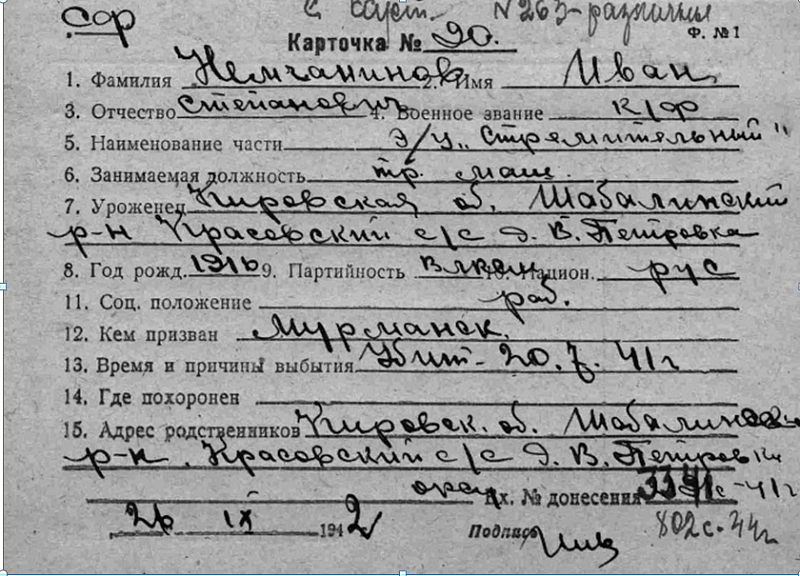 сф
с карт. N263-различия
Карточка № 90. Ф. №1
1. Фамилия Немчанинов 2. Имя Иван
3. Отчество Степанович 4. Военное звание к/ф
5. Наименование части э/м „Стремительный"
6. Занимаемая должность тр. маш.
7. Уроженец Кировская об. Шабалинский
р-н Красовский с/с д. В. Петровка
8. Год рожд. 1916 9. Партийность влксм 10. Национ. рус
11. Соц. положение раб.
12. Кем призван Мурманск.
13. Время и причины выбытия Убит 20.7.41г
14. Где похоронен
15. Адрес родственников Кировск. об. Шабалинский
р-н. Красовский с/с д. В. Петровка
Вх. № донесения с-41г
26 IX 1942
Подпись
802с-44г